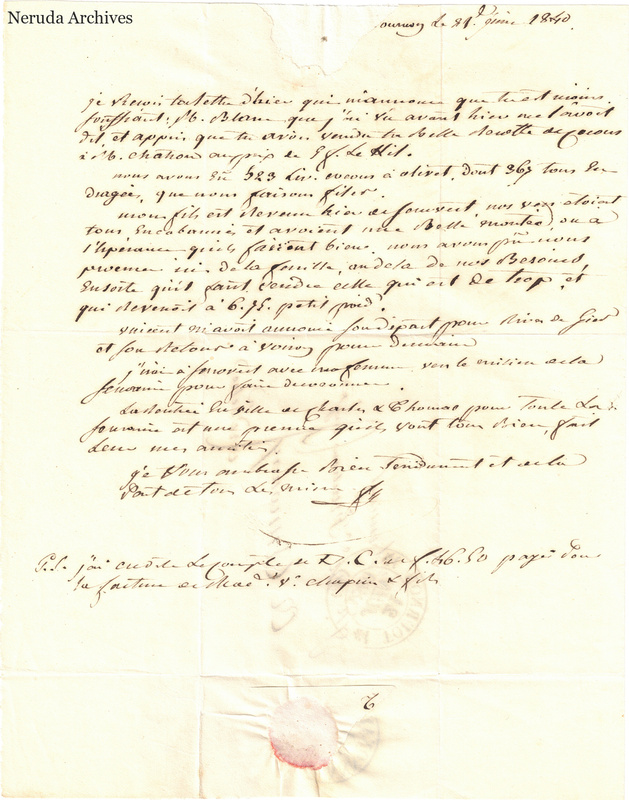 Neruda Archives
le 21 juin 1840
je reçois ta lettre d'hier qui m'annonce que tu est moins
souffrant; M. Blanc que j'ai vu avant hier me l'avoit
dit, et appris que tu avois vendu ta Belle de cocons
à M. chatron au prix de Le Kil.
nous avons Eu 523 Liv. cocons à olivet, dont 367 tous En
dragées, que nous faisons filer.
mon fils est Revenu hier de nos vers étoient
tous Encabannés et avoient une Belle montée, on a
l'Espérance qu'ils fairont bien. nous avons pu nous
procurer ici de la feuille, au delà de nos Besoins,
Ensorte qu'il faut vendre celle qui est de trop, et
qui Revenoit à 6.75. petit poid.
vincent m'avoit annoncé son départ pour Rive de Gier
et son Retour à voiron pour demain
j'irai à avec ma femme vers le milieu de la
semaine pour faire
La Rentrée En ville de Charles & Thomas pour Toute La
semaine est une preuve qu'ils vont tous Bien, fait
Leur mes amitiés.
je Vous embrasse Bien Tendrement et de la
Part de tous Les miens
P.S. j'ai crédité Le compte de D. C. de f. 46.50 payés dans
la facture de Mad. Ve. & fils